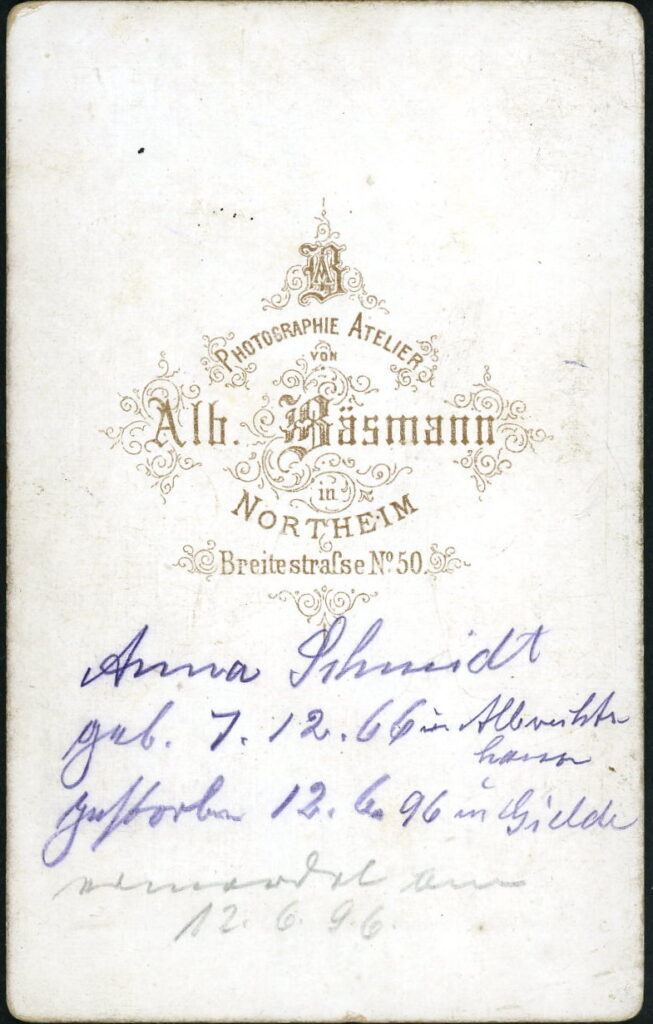 AB
PHOTOGRAPHIE ATELIER
VON
Alb. Bäsmann
in
NORTHEIM
Breitestraſse Nº 50.
Anna Schmidt
geb. 7. 12. 66 in Albrechts
hausen
gestorben 12. 6. 96 in Gielde
ermordet am
12. 6. 96.